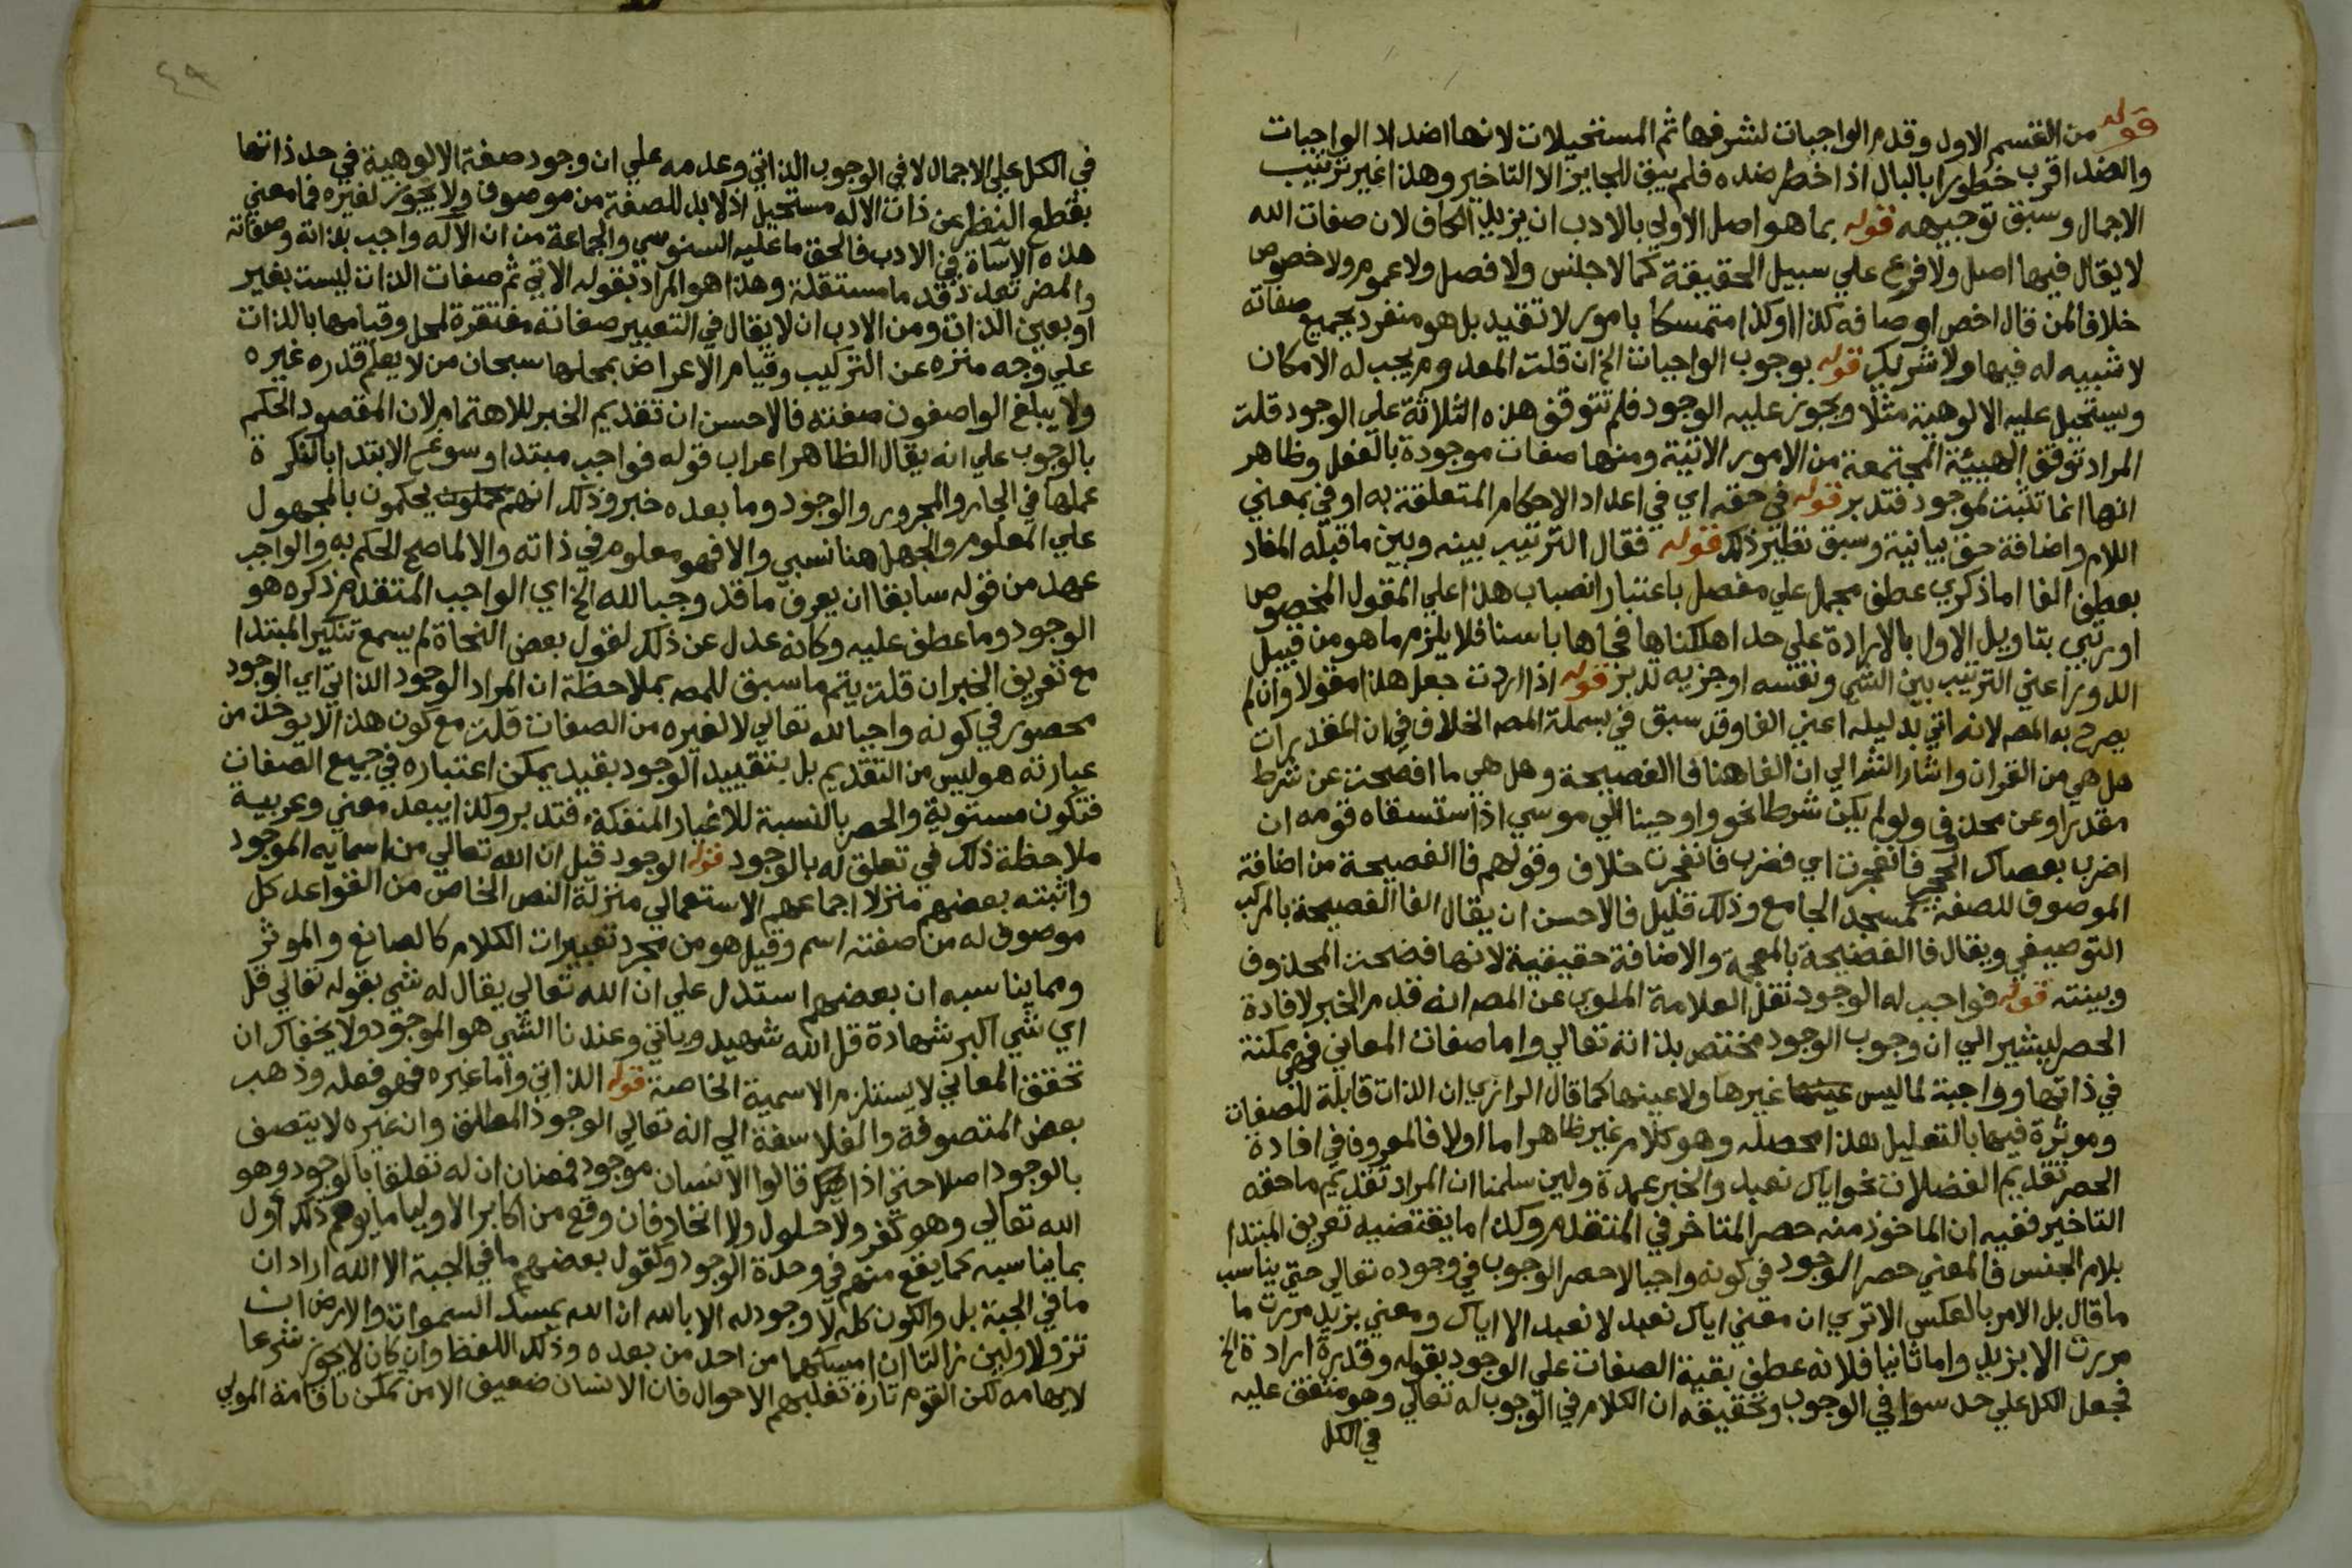 قوله من القسم الاول وقدم الواجبات لشرفها ثم المستحيلات لانها اضداد الواجبات
والضد اقرب خطورا بالبال اذا خطر ضده فلم يبق للجايز الا التاخير وهذا غير ترتيب
الاجمال وسبق توجيهه قوله بما هو اصل الاولي بالادب ان يزيد الكاف لان صفات الله
لا يقال فيها اصل ولا فرع علي سبيل الحقيقة كما لا جنس ولا فصل ولا عموم ولا خصوص
خلافا لمن قال اخص اوصافه كذا او كذا متمسكا بامور لا تفيد بل هو منفرد بجميع صفاته
لا شبيه له فيها ولا شريك قوله بوجوب الواجبات الخ ان قلت المعدوم يجب له الامكان
ويستحيل عليه الالوهية مثلا ويجوز عليه الوجود فلم تتوقف هذه الثلاثة علي الوجود قلت
المراد توقف الهيئة المجتمعة من الامور الاتية ومنها صفات موجودة بالفعل وظاهر
انها انما تثبت لموجود فتدبر قوله في حقه اي في اعداد الاحكام المتعلقة به او في بمعني
اللام واضافة حق بيانية وسبق نظير ذلك قوله فقال الترتيب بينه وبين ما قبله المفاد
بعطف الفا اما ذكري عطف مجمل علي مفصل باعتبار انصباب هذا علي المقول المخصوص
او رتبي بتاويل الاول بالارادة علي حد اهلكناها فجاها باسنا فلا يلزم ما هو من قبيل
الدور اعني الترتيب بين الشي ونفسه او جزيه تدبر قوله اذا اردت جعل هذا مقولا وان لم
يصرح به المص لانه اتي بدليله اعني الفا وقد سبق في بسملة المص الخلاف في ان المقدرات
هل هي من القران واشار الش الي ان الفا هنا فا الفصيحة وهل هي ما افصحت عن شرط
مقدر او عن محذوف ولو لم يكن شرطا نحو واوحينا الي موسي اذ استسقاه قومه ان
اضرب بعصاك الحجر فانفجرت اي فضرب فانفجرت خلاف وقولهم فا الفصيحة من اضافة
الموصوف للصفة كمسجد الجامع وذلك قليل فالاحسن ان يقال الفا الفصيحة بالمركب
التوصيفي ويقال فا الفضيحة بالمعجمة والاضافة حقيقية لانها فضحت المحذوف
وبينته قوله فواجب له الوجود نقل العلامة الملوي عن المص انه قدم الخبر لافادة
الحصر ليشير الي ان وجوب الوجود مختص بذاته تعالي واما صفات المعاني فهي ممكنة
في ذاتها وواجبة لما ليس غيرها ولا عينها كما قال الرازي ان الذات قابلة للصفات
وموثرة فيها بالتعليل هذا محصله وهو كلام غير ظاهر اما اولا فالمعروف في افادة
الحصر تقديم الفضلات نحو اياك نعبد والخبر عمدة ولين سلمنا ان المراد تقديم ما حقه
التاخير ففيه ان الماخوذ منه حصر المتاخر في المتقدم وكذا ما يقتضيه تعريف المبتدا
بلام الجنس فالمعني حصر الوجود في كونه واجبا لا حصر الوجوب في وجوده تعالي حتي يناسب
ما قال بل الامر بالعكس الا تري ان معني اياك نعبد لا نعبد الا اياك ومعني بزيد مررت ما
مررت الا بزيد واما ثانيا فلانه عطف بقية الصفات علي الوجود بقوله وقدرة ارادة الخ
فجعل الكل علي حد سوا في الوجوب وتحقيقه ان الكلام في الوجوب له تعالي وهو متفق عليه
في الكل
٤٩
في الكل علي الاجمال لا في الوجوب الذاتي وعدمه علي ان وجود صفة الالوهية في حد ذاتها
بقطع النظر عن ذات الاله مستحيل اذ لا بد للصفة من موصوف ولا يجوز لغيره فما معني
هذه الاساة في الادب فالحق ما عليه السنوسي والجماعة من ان الاله واجب بذاته وصفاته
والمضر تعدد قدما مستقلة وهذا هو المراد بقوله الاتي ثم صفات الذات ليست بغير
او بعين الذات ومن الادب ان لا يقال في التعبير صفاته مفتقرة لمحل وقيامها بالذات
علي وجه منزه عن التركيب وقيام الاعراض بمحلها سبحان من لا يعلم قدره غيره
ولا يبلغ الواصفون صفته فالاحسن ان تقديم الخبر للاهتمام لان المقصود الحكم
بالوجوب علي انه يقال الظاهر اعراب قوله فواجب مبتدا وسوغ الابتدا بالنكرة
عملها في الجار والمجرور والوجود وما بعده خبر وذلك انهم يحكمون بالمجهول
علي المعلوم والجهل هنا نسبي والا فهو معلوم في ذاته والا لما صح الحكم به والواجب
عهد من قوله سابقا ان يعرف ما قد وجبا لله الخ اي الواجب المتقدم ذكره هو
الوجود وما عطف عليه وكانه عدل عن ذلك لقول بعض النحاة لم يسمع تنكير المبتدا
مع تعريف الخبر ان قلت يتم ما سبق للمص بملاحظة ان المراد الوجود الذاتي اي الوجود
محصور في كونه واجبا لله تعالي لا لغيره من الصفات قلت مع كون هذا لا يوخذ من
عبارته هو ليس من التقديم بل بتقييد الوجود بقيد يمكن اعتباره في جميع الصفات
فتكون مستوية والحصر بالنسبة للاغيار المنفكة فتدبر وكذا يبعد معني وعربية
ملاحظة ذلك في تعلق له بالوجود قوله الوجود قيل ان الله تعالي من اسمايه الموجود
واثبته بعضهم منزلا اجماعهم الاستعمالي منزلة النص الخاص من القواعد كل
موصوف له من صفته اسم وقيل هو من مجرد تعبيرات الكلام كالصانع والموثر
ومما يناسبه ان بعضهم استدل علي ان الله تعالي يقال له شي بقوله تعالي قل
اي شي اكبر شهادة قل الله شهيد وياتي وعندنا الشي هو الموجود ولا يخفاك ان
تحقق المعاني لا يستلزم الاسمية الخاصة قوله الذاتي واما غيره فهو فعله وذهب
بعض المتصوفة والفلاسفة الي انه تعالي الوجود المطلق وان غيره لا يتصف
بالوجود اصلا حتي اذا قالوا الانسان موجود فمعنان ان له تعلقا بالوجود وهو
الله تعالي وهو كفر ولا حلول ولا اتحاد فان وقع من اكابر الاوليا ما يوهم ذلك اول
بما يناسبه كما يقع منهم في وحدة الوجود وكقول بعضهم ما في الجبة الا الله اراد ان
ما في الجبة بل والكون كله لا وجود له الا بالله ان الله يمسك السموات والارض ان
تزولا ولين زالتا ان امسكهما من احد من بعده وذلك اللفظ وان كان لا يجوز شرعا
لايهامه لكن القوم تارة تغلبهم الاحوال فان الانسان ضعيف الا من تمكن باقامة المولي